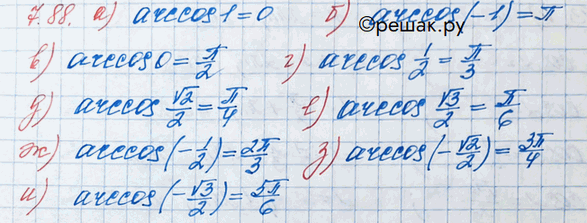 7.88. а) arccos 1 = 0 б) arccos(-1) = π
©решак.ру
в) arccos 0 = π/2 г) arccos 1/2 = π/3
д) arccos √2/2 = π/4 е) arccos √3/2 = π/6
ж) arccos(-1/2) = 2π/3 з) arccos(-√2/2) = 3π/4
и) arccos(-√3/2) = 5π/6